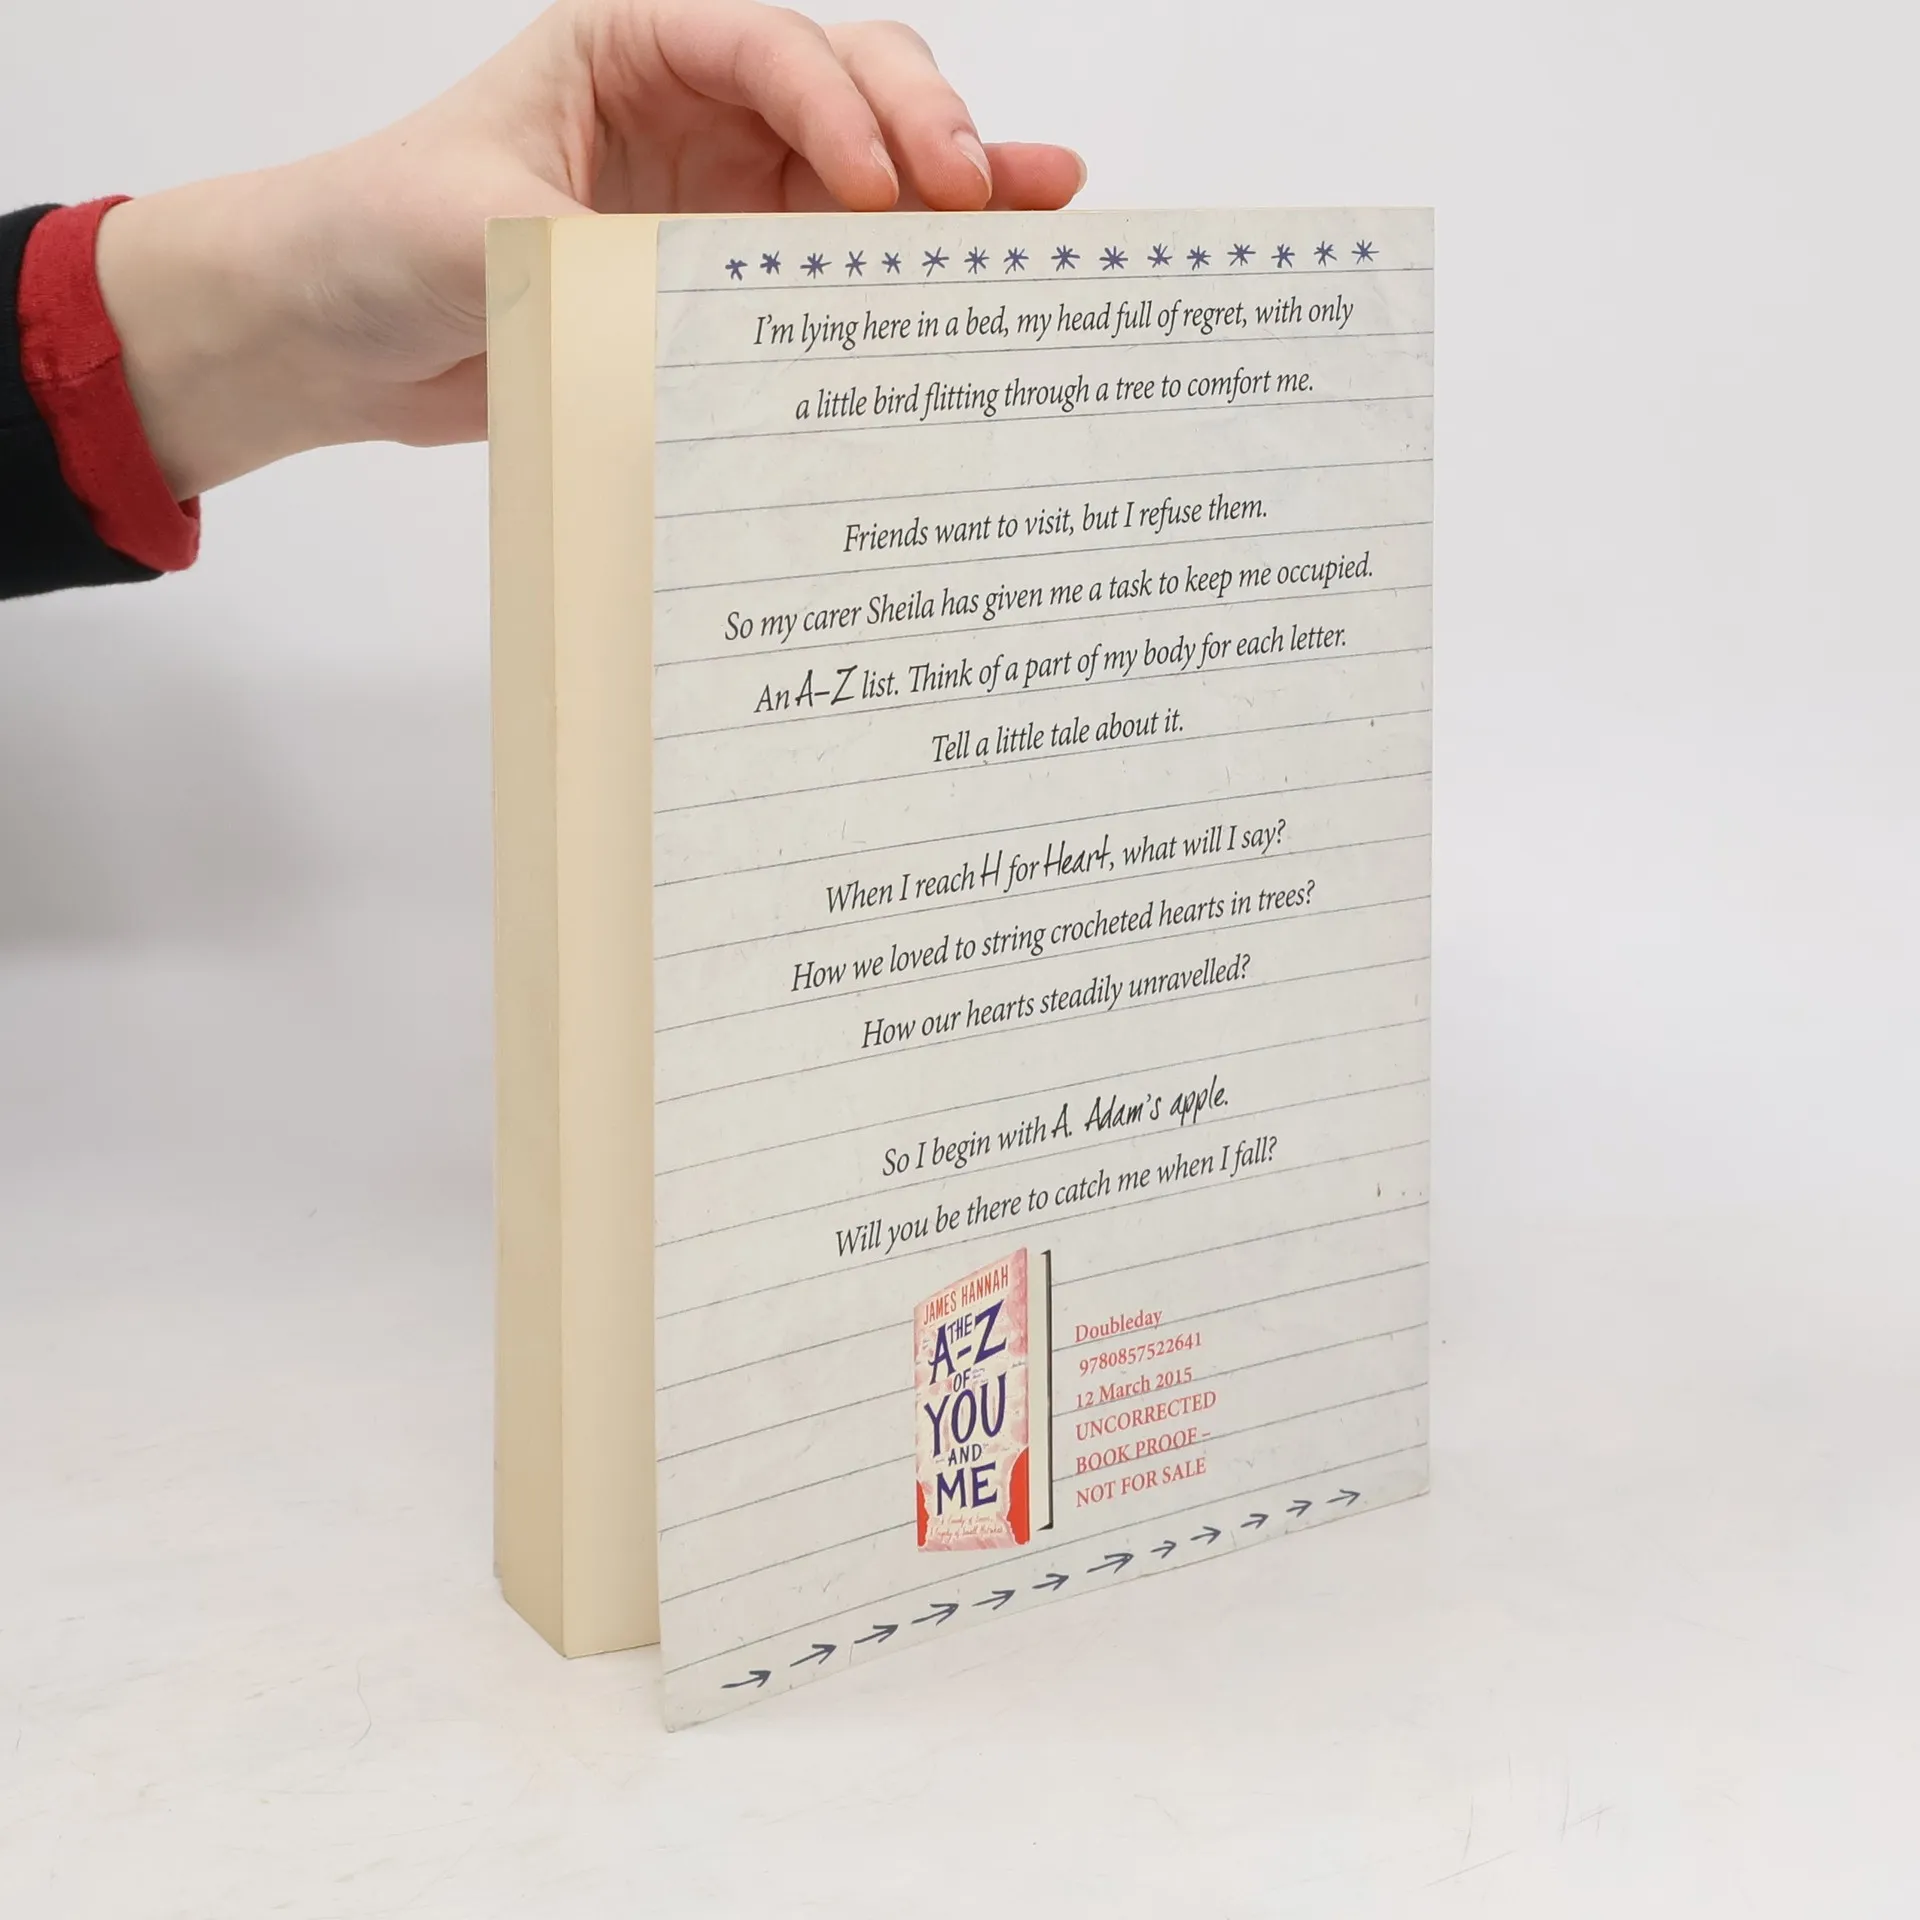 I'm lying here in a bed, my head full of regret, with only
a little bird flitting through a tree to comfort me.
Friends want to visit, but I refuse them.
So my carer Sheila has given me a task to keep me occupied.
An A–Z list. Think of a part of my body for each letter.
Tell a little tale about it.
When I reach H for Heart, what will I say?
How we loved to string crocheted hearts in trees?
How our hearts steadily unravelled?
So I begin with A. Adam's apple.
Will you be there to catch me when I fall?
JAMES HANNAH
THE
A–Z
OF
YOU
AND
ME
Doubleday
9780857522641
12 March 2015
UNCORRECTED
BOOK PROOF –
NOT FOR SALE